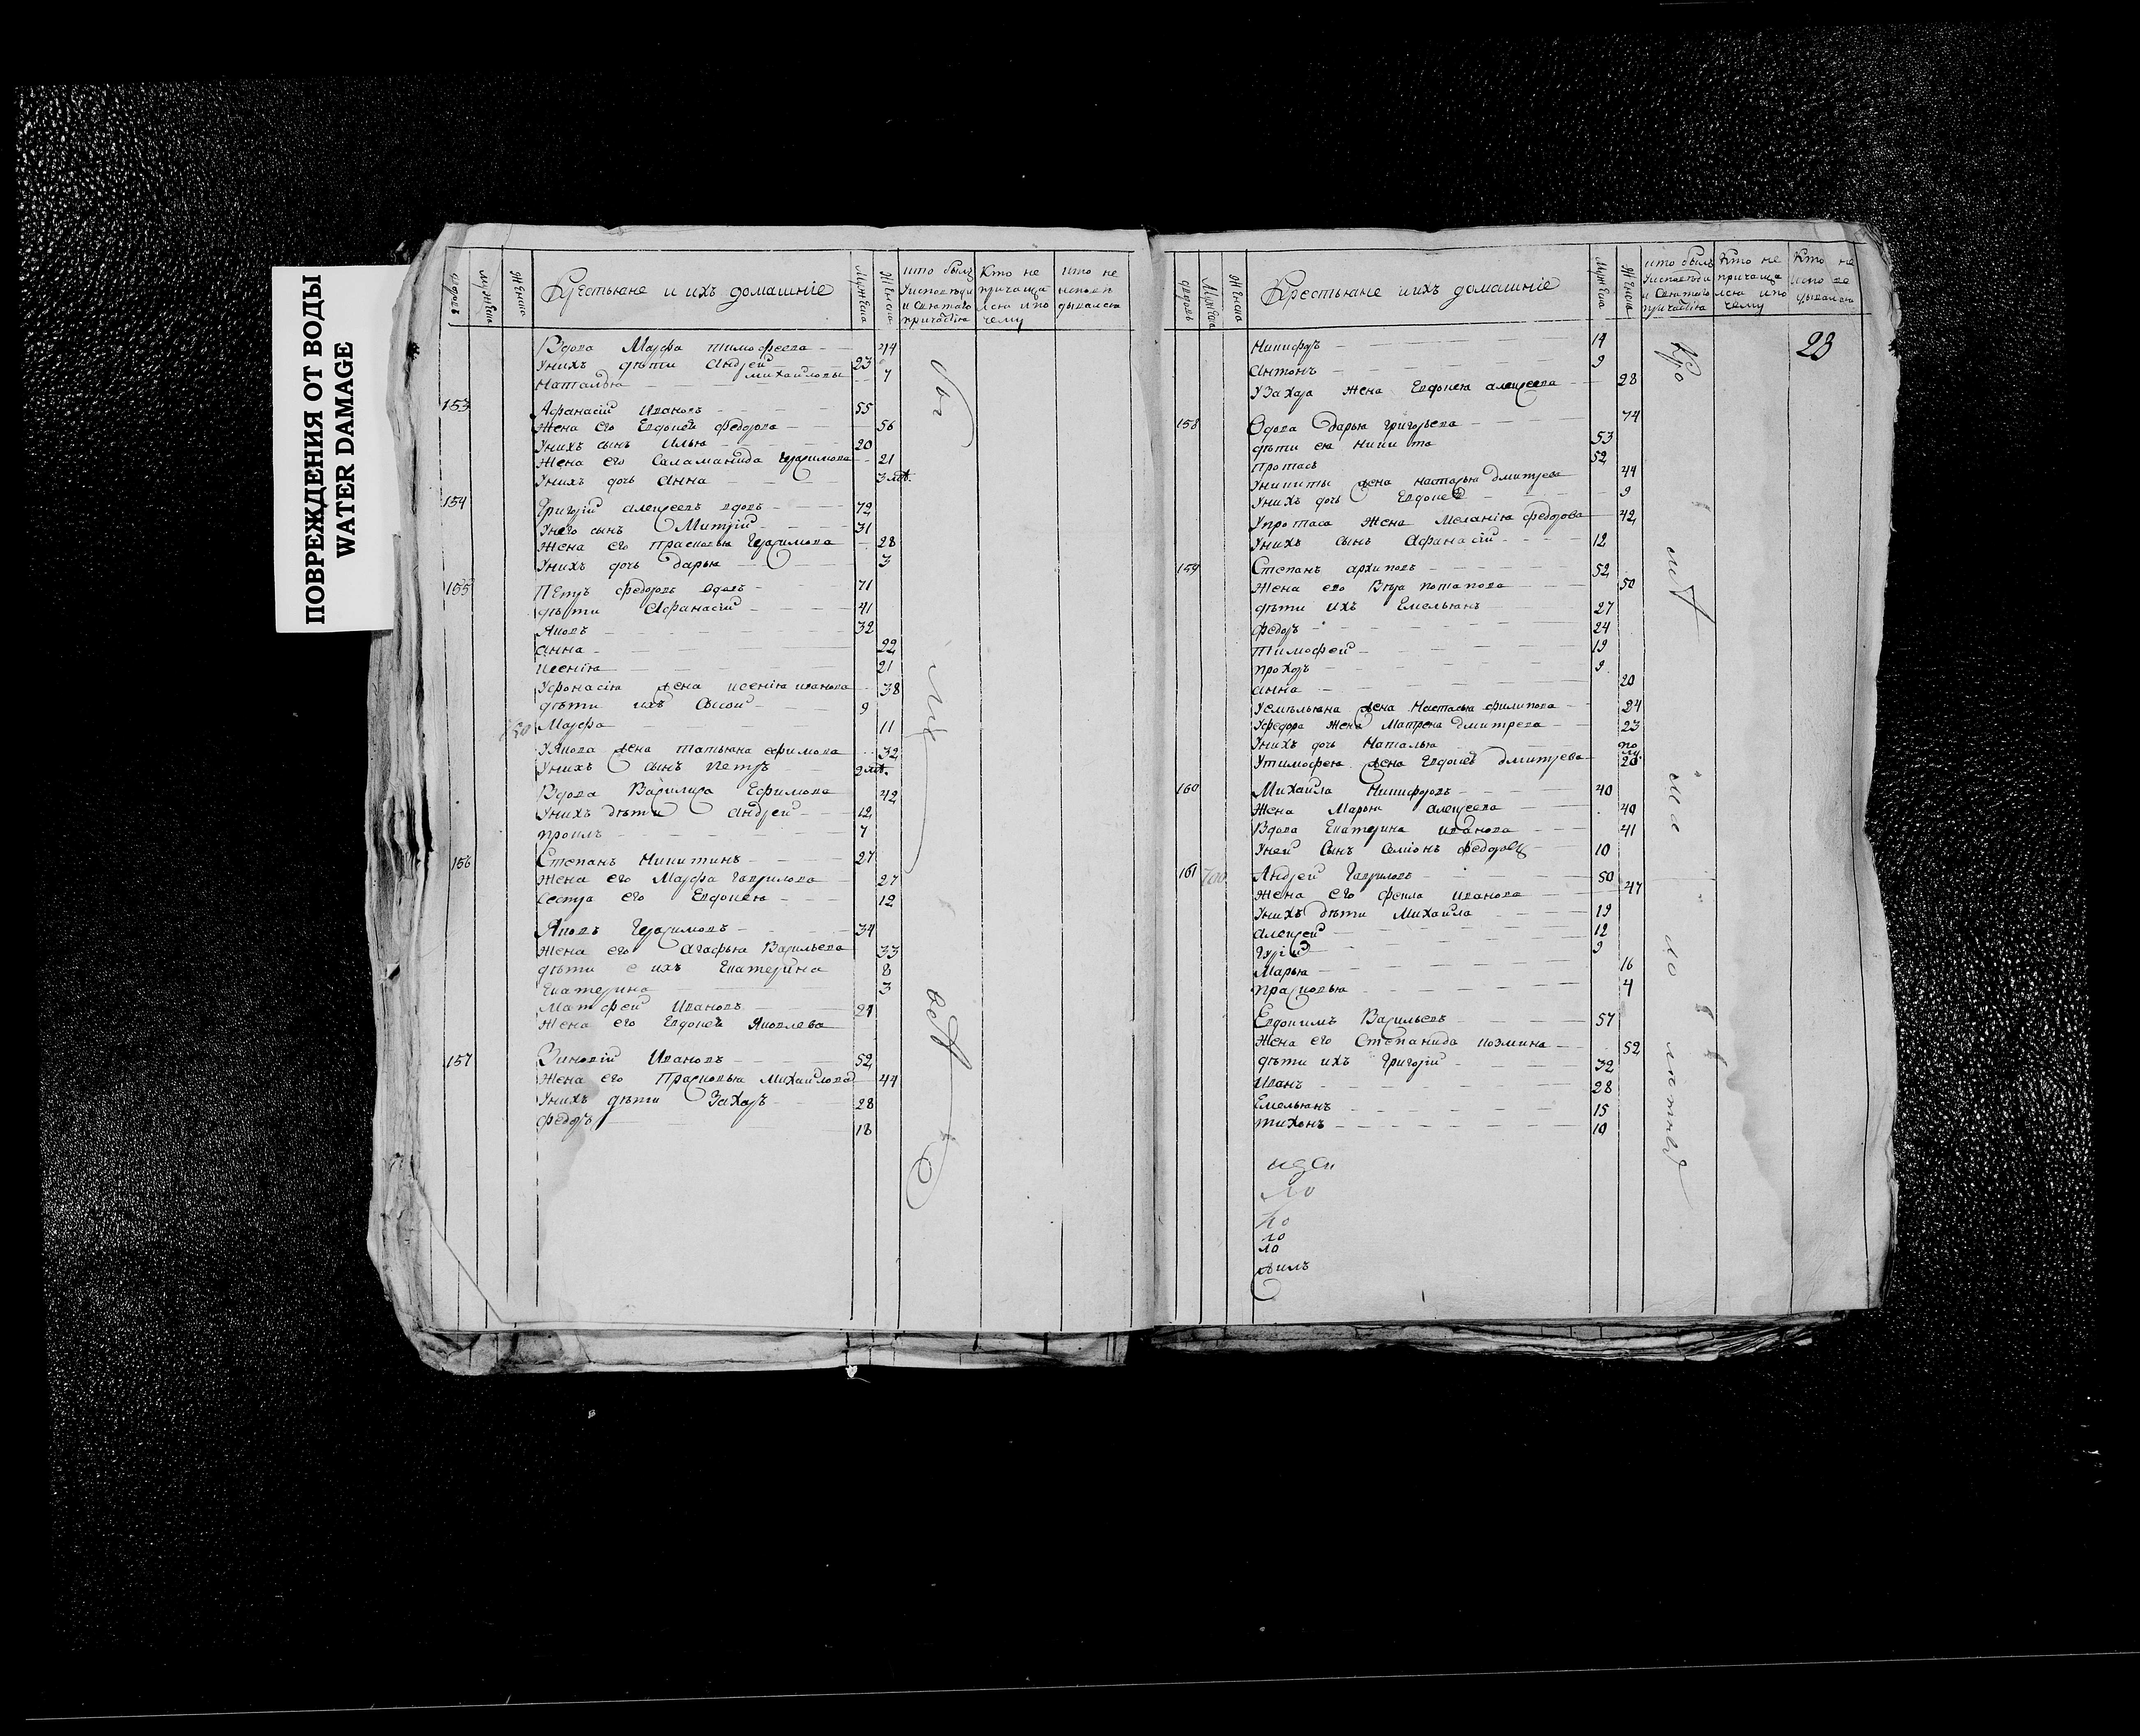 ПОВРЕЖДЕНИЯ ОТ ВОДЫ
WATER DAMAGE
дворовъ Мужеска Женска Крестьяне и ихъ домашніе Мужеска Женска
кто былъ у исповѣди и святого причастія
Кто не причащался и по чему
кто не исповѣдывался
Вдова Марфа тимофеева 44
Унихъ дѣти Андрей 23
михайловы
Наталья 7
153 Афанасій Ивановъ 55
Жена его Евдокея Федорова 56
Унихъ сынъ Илья 20
Жена его Саламанида Герасимова 21
Унихъ дочь Анна 3
154 Григорій алексеевъ вдовъ 72
Унего сынъ Митрій 31
Жена его прасковья Герасимова 28
Унихъ дочь дарья 3
155 Петръ федоровъ вдовъ 71
дѣти Афанасій 41
Яковъ 32
анна 22
ксенія 21
Уафонасія жена ксенія иванова 38
дѣти ихъ Сысой 9
Марфа 11
УЯкова жена татьяна ефимова 32
Унихъ сынъ петръ 2
Вдова Василиса Ефимова 42
Унихъ дѣти андрей 12
проклъ 7
156 Степанъ Никитинъ 27
Жена его Марфа Гаврилова 27
Сестра его Евдокея 12
Яковъ Герасимовъ 34
Жена его агафья Васильева 33
дѣти ихъ Екатерина 8
Екатерина 3
Матфей Ивановъ 21
Жена его Евдокея Яковлева
157 Зиновій Ивановъ 52
Жена его Прасковья Михайлова 44
Унихъ дѣти Захаръ 28
Федоръ 18
дворовъ Мужеска Женска Крестьяне и ихъ домашніе Мужеска Женска
кто былъ у исповѣди и святого причастія
Кто не причащался и по чему
Кто не исповедывался
23
Никифоръ 14
антонъ 9
УЗахара жена Евдокея алексеева 28
158 Вдова дарья григорьева 74
дѣти ея никита 53
протасъ 52
Уникиты жена настасья дмитрева 44
Унихъ дочь Евдокея 9
Упротаса Жена Меланія федорова 42
Унихъ сынъ Афанасій 12
159 Степанъ архиповъ 52
Жена ево Вѣра потапова 50
дѣти ихъ Емельянъ 27
федоръ 24
тимофей 19
прохоръ 9
анна 20
Уемельяна жена Настасья филипова 24
Уфедора Жена Матрена дмитрева 23
Унихъ дочь Наталья
Утимофея жена Евдокея дмитрева 20
160 Михайла Никифоровъ 40
Жена Марья алексеева 40
Вдова Екатерина иванова 41
Уней Сынъ Семіонъ федоровъ 10
161 Андрей Гавриловъ 50
Жена его фекла иванова 47
Унихъ дѣти Михайла 19
алексей 12
Гурій 9
Марья 16
прасковья 4
Евдокимъ Васильевъ 57
Жена его Степанида козмина 52
дѣти ихъ григорій 32
Иванъ 28
Емельянъ 15
тихонъ 10
но
но
но